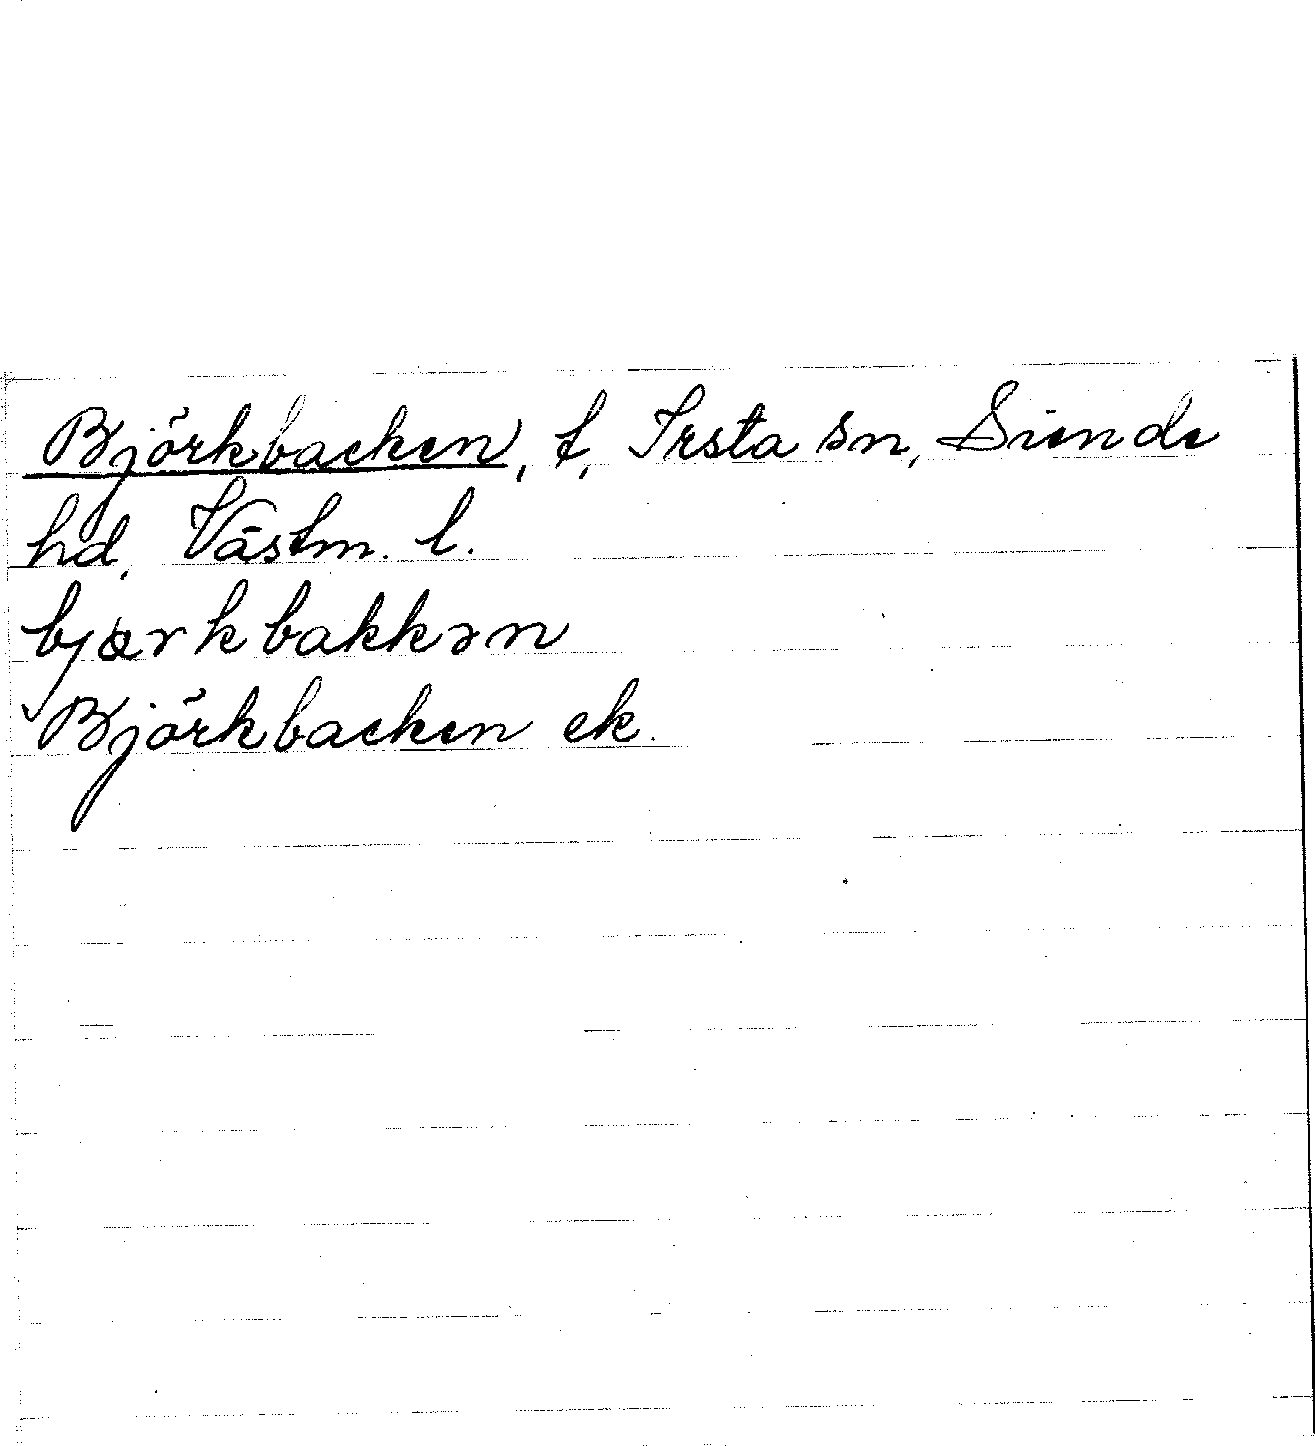 Björkbacken, t, Irsta sn, Siende
hd, Västm. l.
bjærkbakkən
Björkbacken ek.